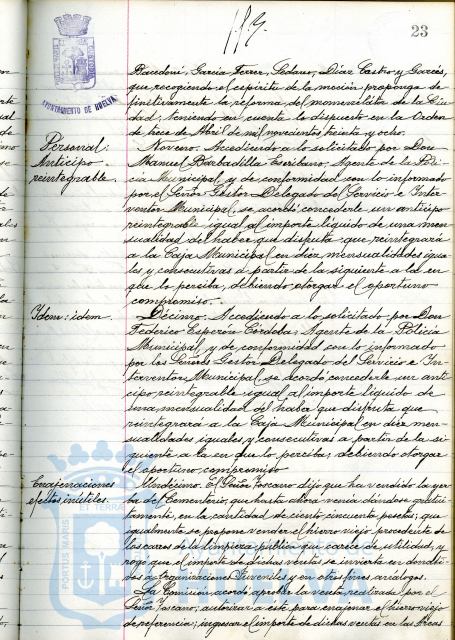 23
AYUNTAMIENTO DE HUELVA
Garcia Ferrer, Sedano, Díaz Castro y Garcés,
que recogiendo el espíritu de la moción proponga de-
finitivamente la reforma del nomenclátor de la Ciu-
dad, teniendo en cuenta lo dispuesto en la Orden
de trece de Abril de mil novecientos treinta y ocho.
Personal:
Anticipo
reintegrable.
Noveno. Accediendo a lo solicitado por Don
Manuel Barbadilla Escribano, Agente de la Poli-
cía Municipal, y de conformidad con lo informado
por el Señor Gestor Delegado del Servicio e Inter-
ventor Municipal, se acordó concederle un anticipo
reintegrable igual al importe líquido de una men-
sualidad del haber que disfruta que reintegrará
a la Caja Municipal en diez mensualidades igua-
les y consecutivas a partir de la siguiente a la en
que lo perciba, debiendo otorgar el oportuno
compromiso.
Idem: idem.
Décimo. Accediendo a lo solicitado por Don
Federico Esperón Córdoba, Agente de la Policía
Municipal, y de conformidad con lo informado
por los Señores Gestor Delegado del Servicio e In-
terventor Municipal se acordó concederle un anti-
cipo reintegrable igual al importe líquido de
una mensualidad del haber que disfruta que
reintegrará a la Caja Municipal en diez men-
sualidades iguales y consecutivas a partir de la si-
guiente a la en que lo perciba, debiendo otorgar
el oportuno compromiso
Enagenaciones
efectos inútiles.
Undécimo. El Señor Toscano dijo que ha vendido la yer-
ba del Cementerio, que hasta ahora venía dándose gratui-
tamente, en la cantidad de ciento cincuenta pesetas; que
igualmente se propone vender el hierro viejo procedente de
los carros de la limpieza pública que carece de utilidad, y
rogó que el importe de dichas ventas se invierta en donati-
vos a Organizaciones Juveniles y en otros fines análogos.
La Comisión acordó aprobar la venta realizada por el
Señor Toscano, autorizar a este para enajenar el hierro viejo
de referencia; ingresar el importe de dichas ventas en las Arcas
PORTUS MARIS
ET TERRÆ